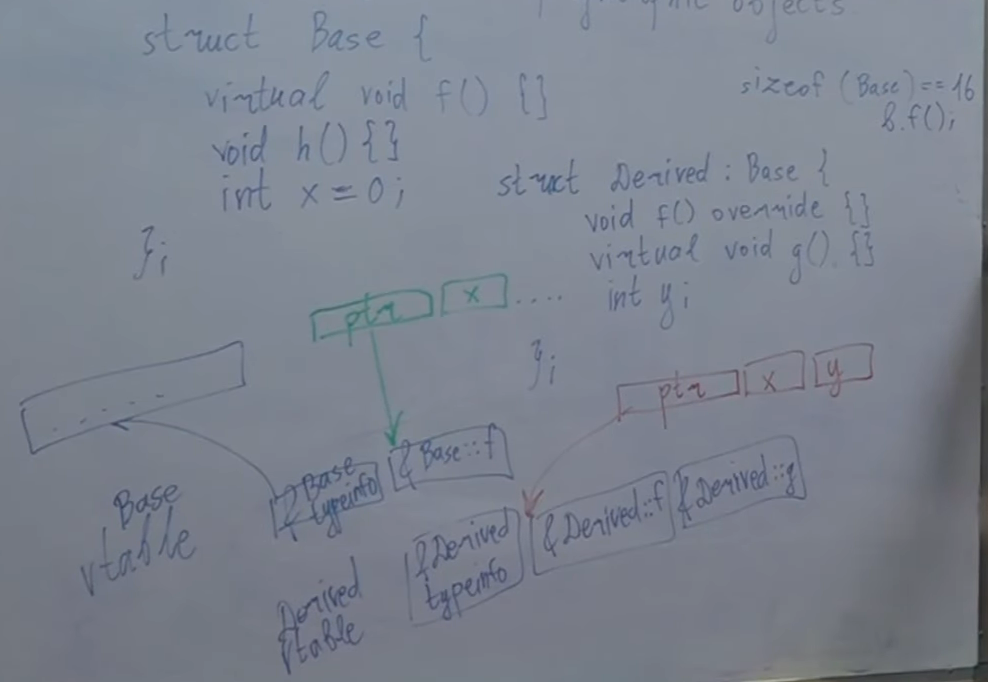 objects
struct Base {
virtual void f() {}
void h() {}
int x = 0;
};
sizeof (Base) == 16
b.f();
struct Derived : Base {
void f() override {}
virtual void g() {}
int y;
};
ptr x ....
ptr x y
. . . . .
&Base typeinfo &Base::f
Base vtable
&Derived typeinfo &Derived::f &Derived::g
Derived vtable